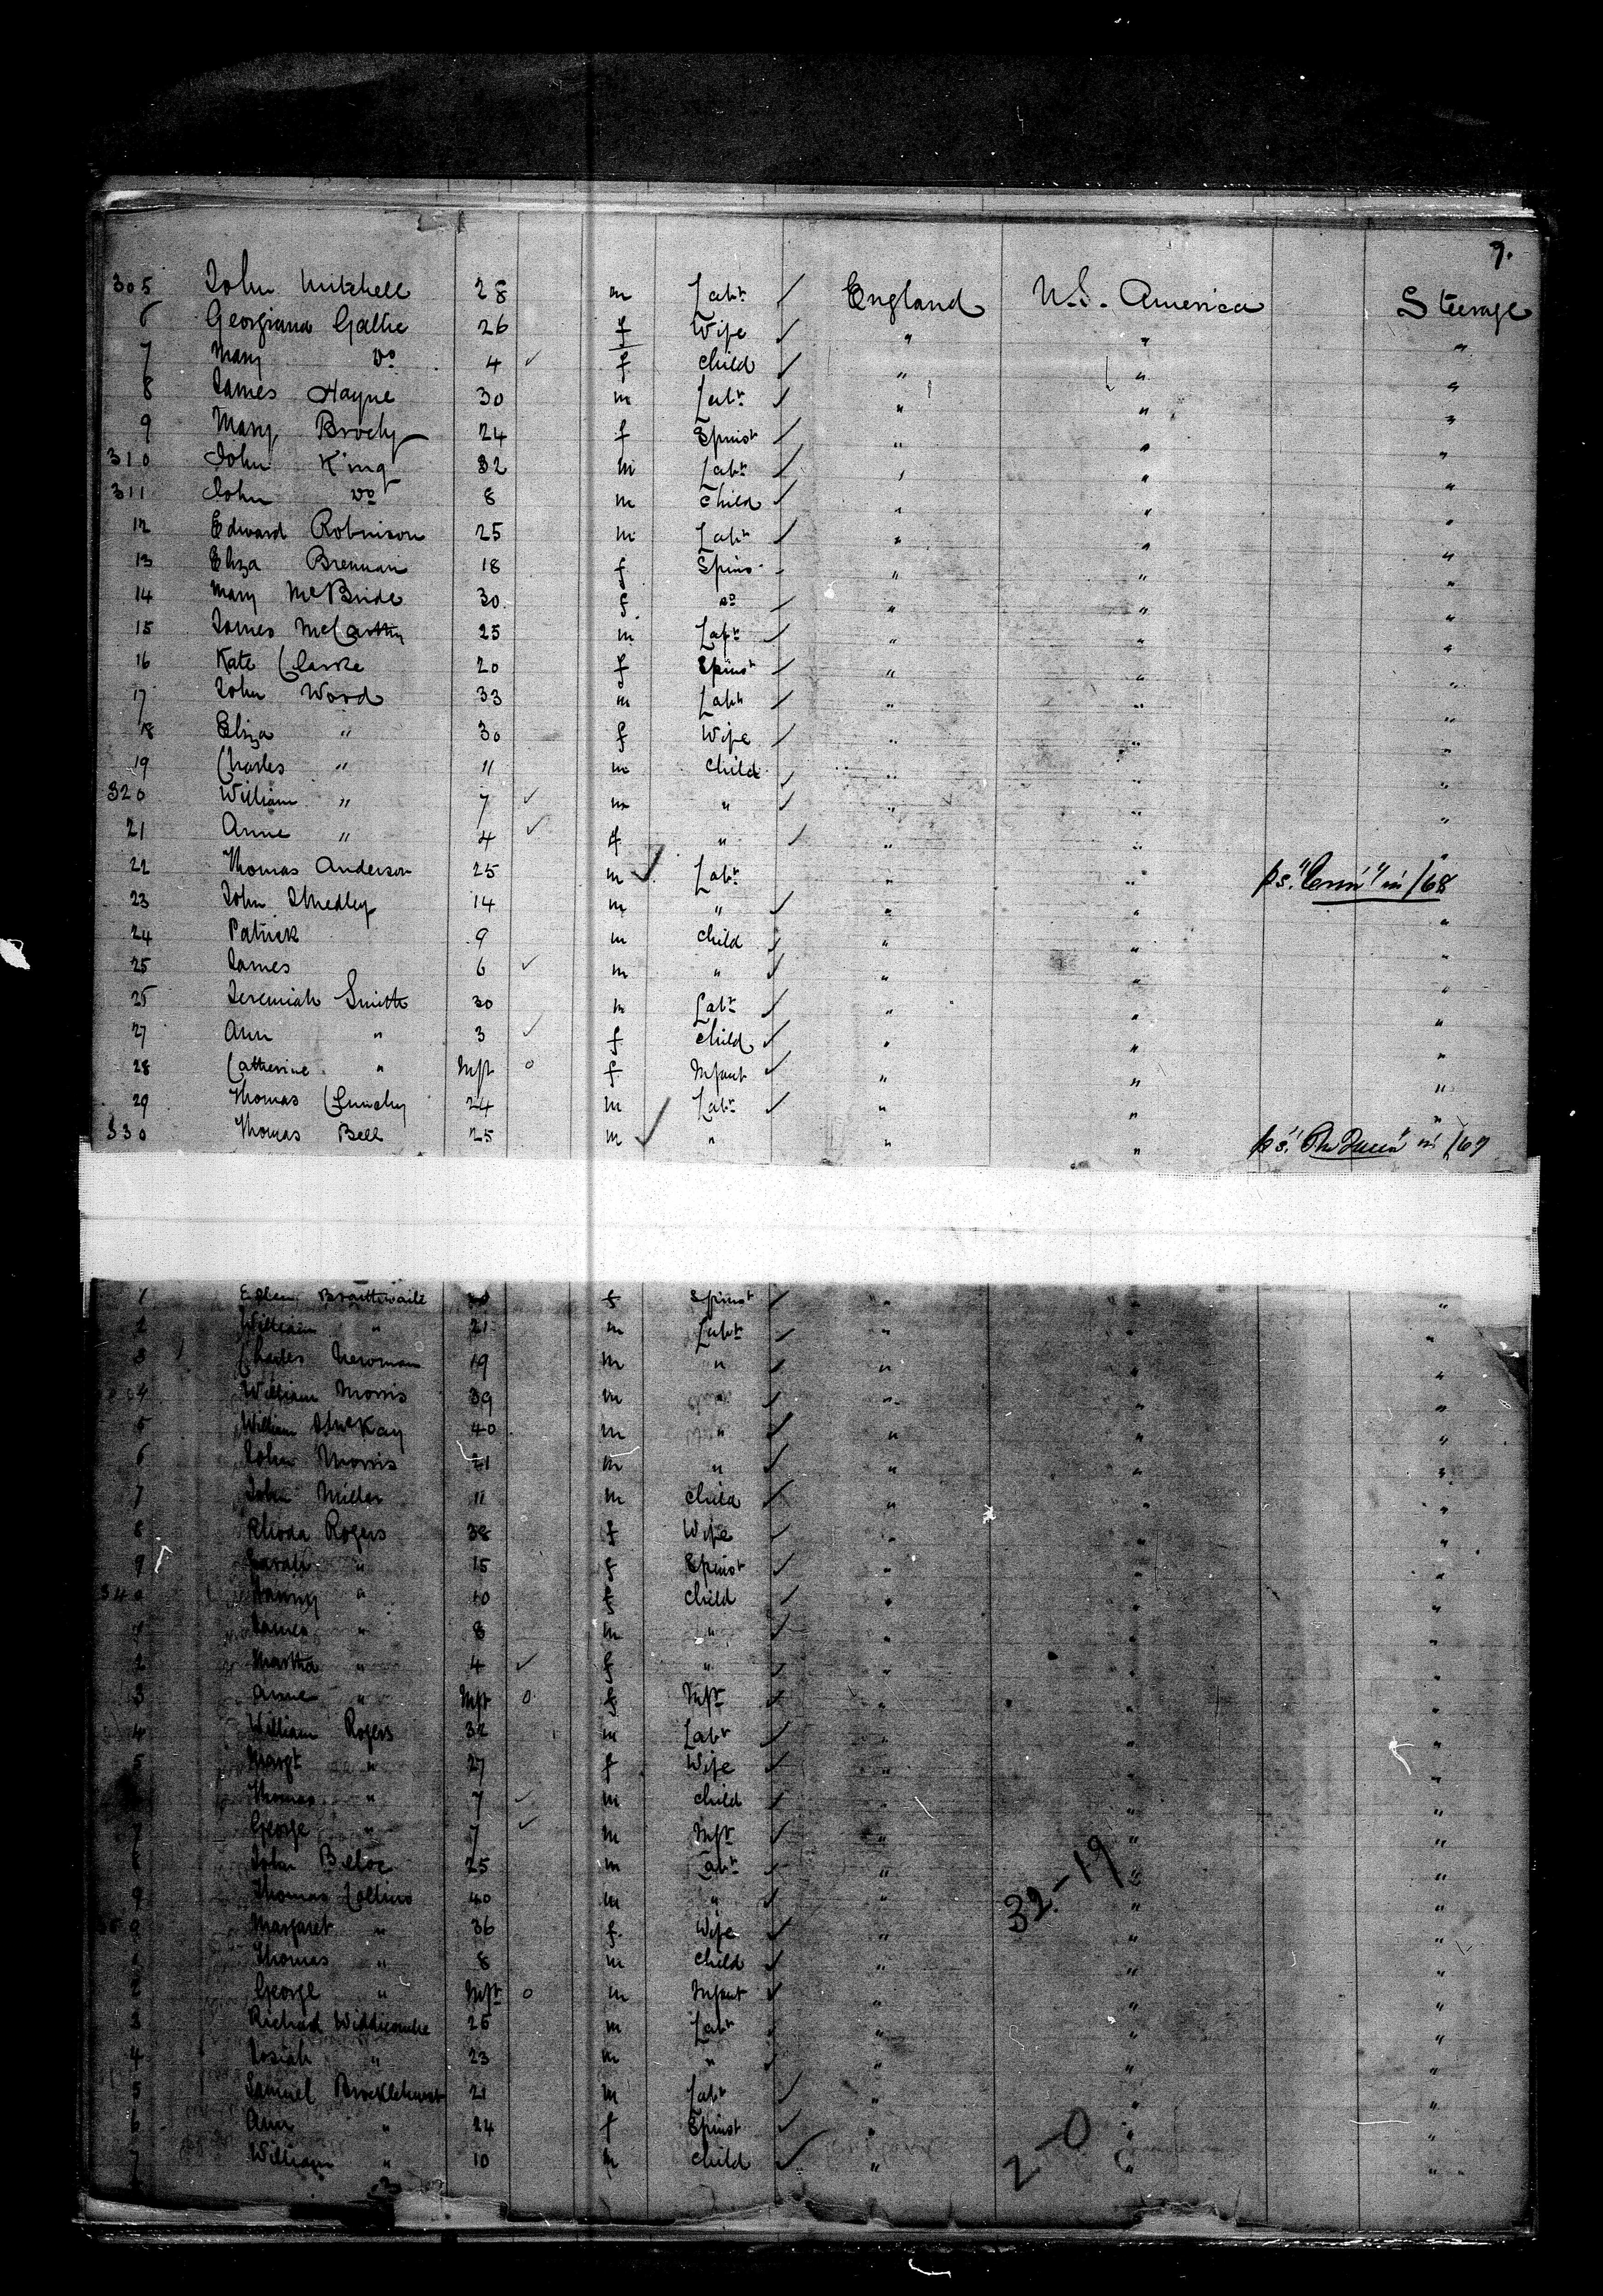 9.
305 John Mitchell 28 m Labr ✓ England U.S. America Steerage
6 Georgiana Gallie 26 f Wife ✓ " " "
7 Mary Do 4 ✓ f Child ✓ " " "
8 James Hayne 30 m Labr ✓ " " "
9 Mary Brody 24 f Spinst ✓ " " "
310 John King 32 m Labr ✓ " " "
311 John Do 8 m Child ✓ " " "
12 Edward Robinson 25 m Labr ✓ " " "
13 Eliza Brennan 18 f Spins " " "
14 Mary McBride 30 f Do ✓ " " "
15 James McCarthy 25 m Labr ✓ " " "
16 Kate Clarke 20 f Spinst ✓ " " "
17 John Wood 33 m Labr ✓ " " "
18 Eliza " 30 f Wife ✓ " " "
19 Charles " 11 m Child ✓ " " "
320 William " 7 ✓ m " ✓ " " "
21 Anne " 4 ✓ f " ✓ " " "
22 Thomas Anderson 25 m ✓ Labr " " p s. " " in /68
23 John Smedley 14 m " ✓ " " "
24 Patrick 9 m Child ✓ " " "
25 James 6 ✓ m " ✓ " " "
26 Jeremiah Smith 30 m Labr ✓ " " "
27 Ann " 3 ✓ f Child ✓ " " "
28 Catherine " Inft o f Infant ✓ " " "
29 Thomas 24 m Labr ✓ " " "
330 Thomas Bell 25 m ✓ " " " p s. " " in /67
1 Ellen Braithwaite f Spinst ✓ " " "
2 William " 21 m Labr ✓ " " "
3 Charles Newman 19 m " ✓ " " "
4 William Morris 39 m " ✓ " " "
5 William 40 m " ✓ " " "
6 John Morris 21 m " ✓ " " "
7 John Miller 11 m Child ✓ " " "
8 Rhoda Rogers 38 f Wife ✓ " " "
9 Sarah " 15 f Spinst ✓ " " "
340 " 10 f Child ✓ " " "
1 James " 8 m " ✓ " " "
2 Martha " 4 ✓ f " ✓ " " "
3 Anne " Inft o f Inft ✓ " " "
4 William Rogers 32 m Labr ✓ " " "
5 Margt " 27 f Wife ✓ " " "
Thomas " 7 ✓ m Child ✓ " " "
7 George " 7 ✓ m Inft ✓ " " "
8 John 25 m Labr ✓ " " "
32-19
9 Thomas Collins 40 m " ✓ " " "
350 Margaret " 36 f Wife ✓ " " "
1 Thomas " 8 m Child ✓ " " "
2 George " Inft o m Infant ✓ " " "
3 Richard Widdicombe 26 m Labr ✓ " " "
4 Josiah " 23 m " ✓ " " "
5 Samuel Brocklehurst 21 m Labr ✓ " " "
6 Ann " 24 f Spinst ✓ " " "
2-0
7 William " 10 m Child ✓ " " "